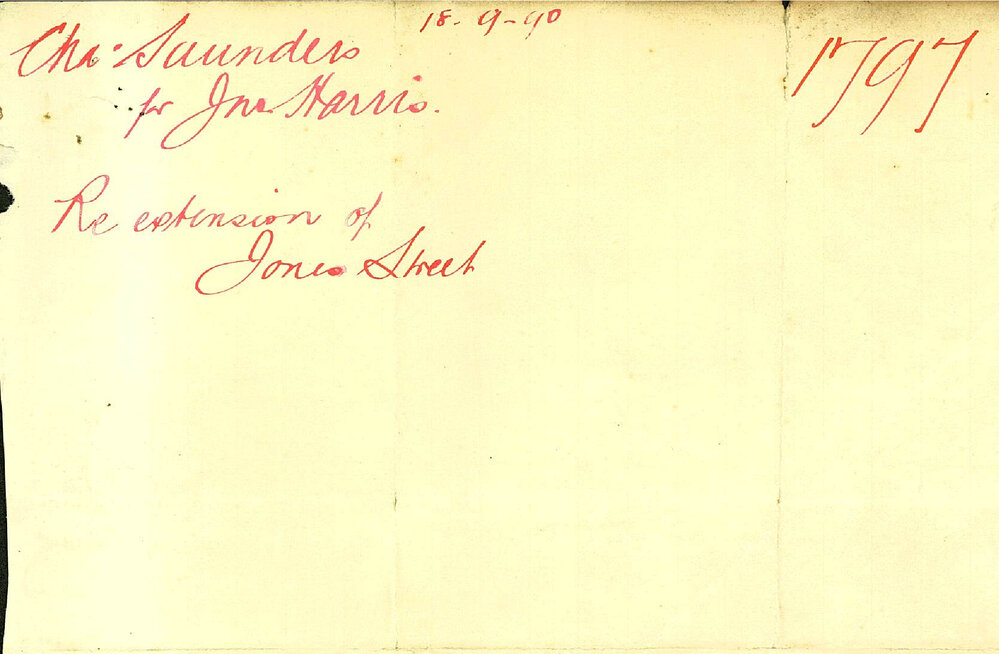 18-9-90
Chas Saunders
for Jno Harris.
1797
Re extension of
Jones Street